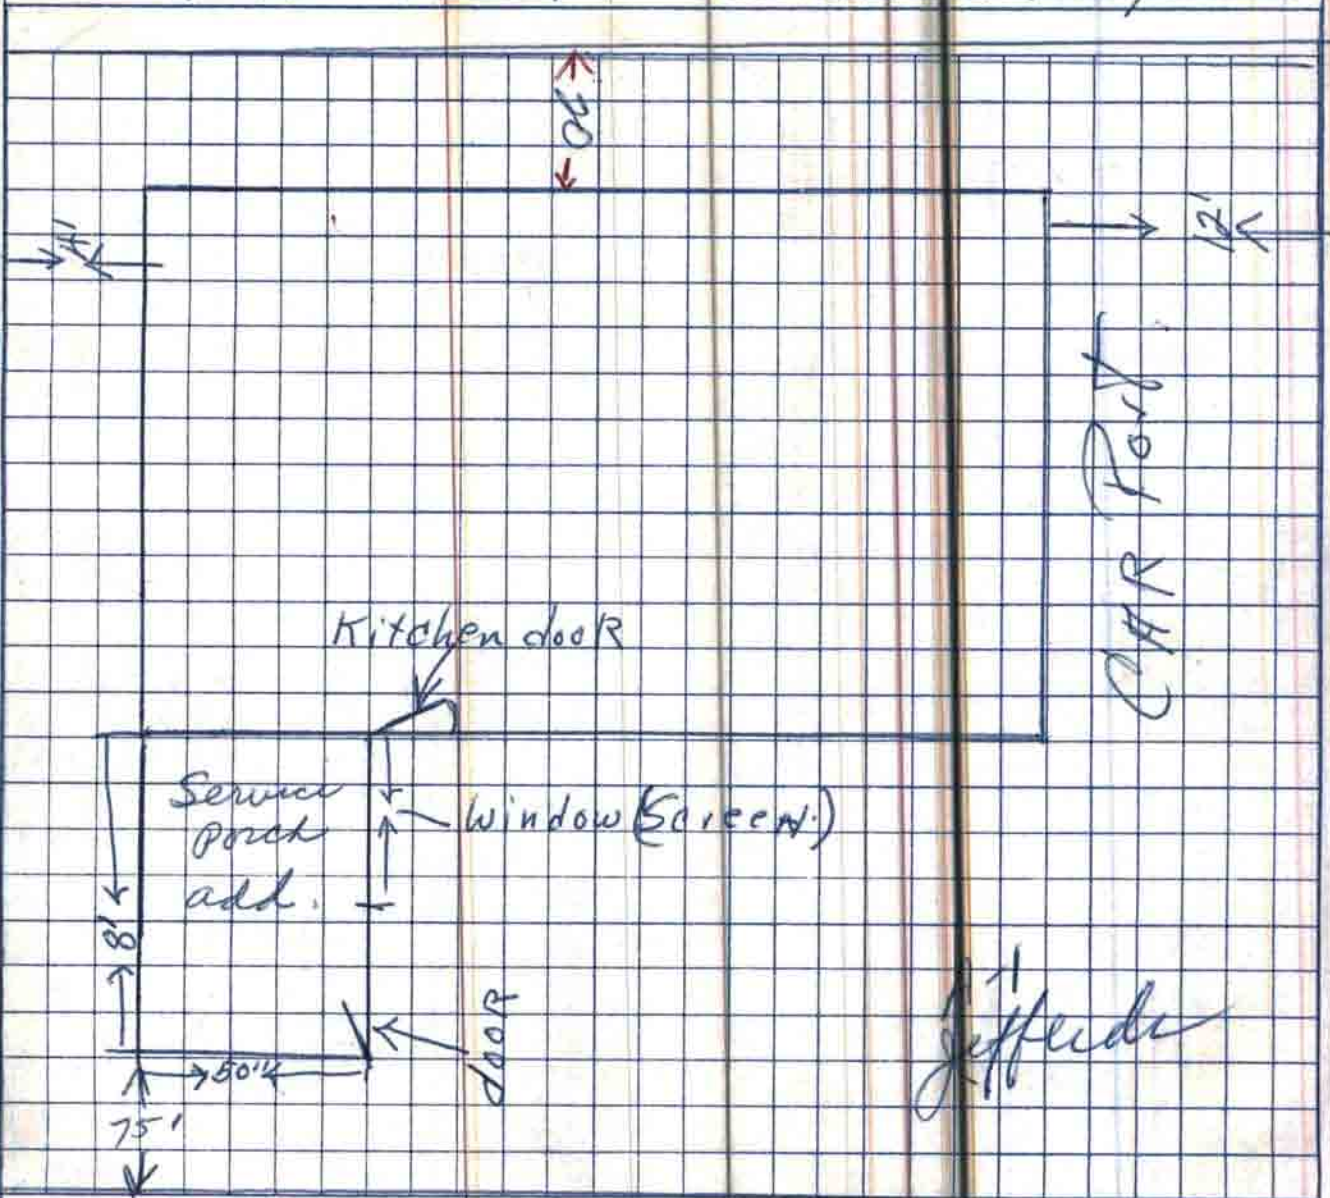 20
4'
12'
CAR Port
Kitchen dooR
Service
porch
add.
Window (Screen.)
8'
dooR
50"
75'